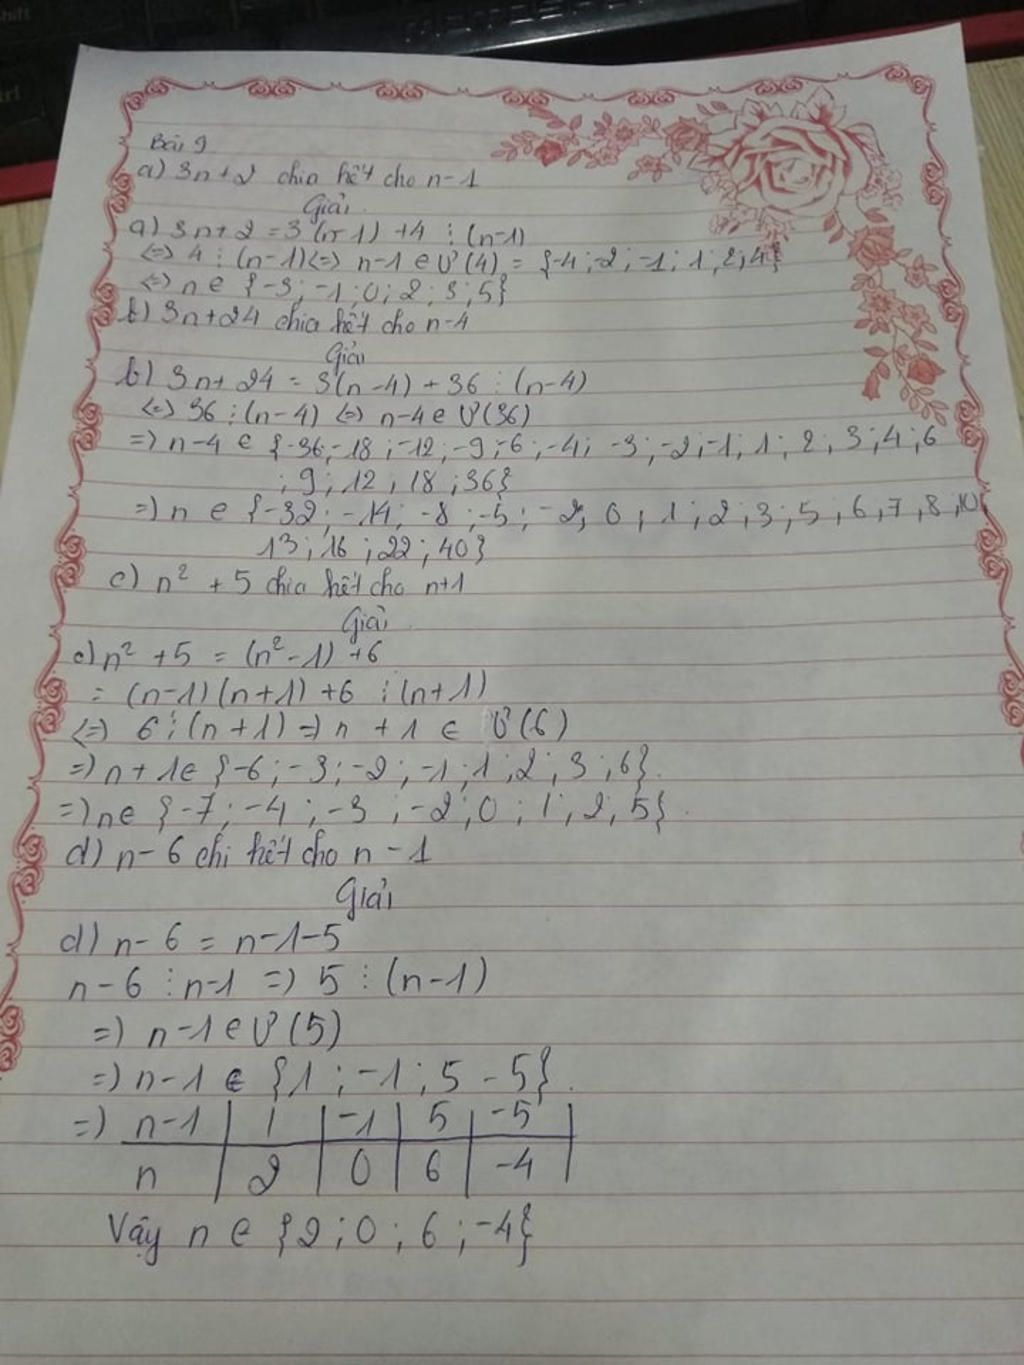 Bài 9
a) 3n+2 chia hết cho n-1
Giải
a) 3n+2 = 3(n-1) +4 ⋮ (n-1)
<=> 4 ⋮ (n-1) <=> n-1 ∈ Ư(4) = {-4;-2;-1;1;2;4}
<=> n ∈ {-3;-1;0;2;3;5}
b) 3n+24 chia hết cho n-4
Giải
b) 3n+24 = 3(n-4) + 36 ⋮ (n-4)
<=> 36 ⋮ (n-4) <=> n-4 ∈ Ư(36)
=> n-4 ∈ {-36;-18;-12;-9;-6;-4;-3;-2;-1;1;2;3;4;6
;9;12;18;36}
=> n ∈ {-32;-14;-8;-5;-2;0;1;2;3;5;6;7;8;10;
13;16;22;40}
c) n² + 5 chia hết cho n+1
Giải
c) n² + 5 = (n²-1) +6
= (n-1)(n+1) +6 ⋮ (n+1)
<=> 6 ⋮ (n+1) => n + 1 ∈ Ư(6)
=> n+1 ∈ {-6;-3;-2;-1;1;2;3;6}.
=> n ∈ {-7;-4;-3;-2;0;1;2;5}.
d) n-6 chi hết cho n-1
Giải
d) n-6 = n-1-5
n-6 ⋮ n-1 => 5 ⋮ (n-1)
=> n-1 ∈ Ư(5)
=> n-1 ∈ {1;-1;5 -5}.
=> n-1 | 1 | -1 | 5 | -5 |
n | 2 | 0 | 6 | -4 |
Vậy n ∈ {2;0;6;-4}